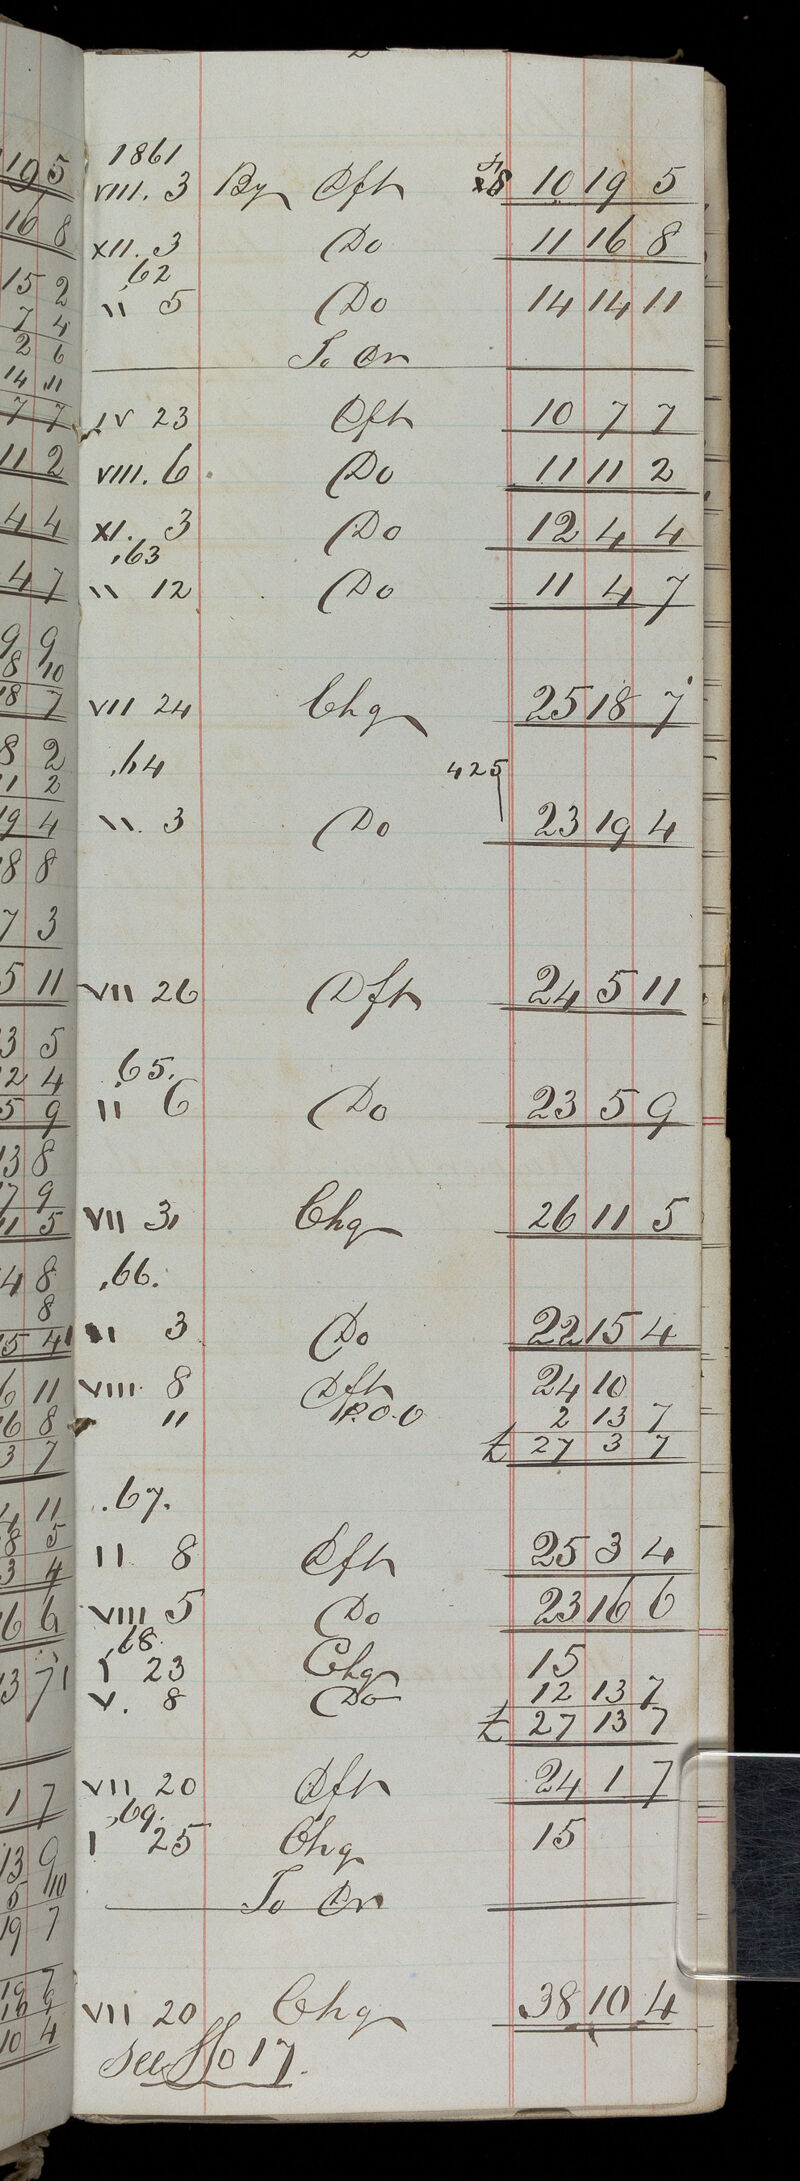 1861
VIII. 3 By Dft 10 19 5
XII. 3 Do 11 16 8
,62
II 5 Do 14 14 11
To Dr
IV 23 Dft 10 7 7
VIII. 6 Do 11 11 2
XI. 3 Do 12 4 4
,63
II 12 Do 11 4 7
VII 24 Chq 25 18 7
,64 425
II. 3 Do 23 19 4
VII 26 Dft 24 5 11
,65.
II 6 Do 23 5 9
VII 31 Chq 26 11 5
,66.
II 3 Do 22 15 4
VIII 8 Dft 24 10
" P.O.O 2 13 7
£ 27 3 7
.67.
II. 8 Dft 25 3 4
VIII 5 Do 23 16 6
,68.
I 23 Chq 15
V. 8 Do 12 13 7
£ 27 13 7
VII 20 Dft 24 1 7
,69.
I 25 Chq 15
To Dr
VII 20 Chq 38 10 4
See Fo 17.